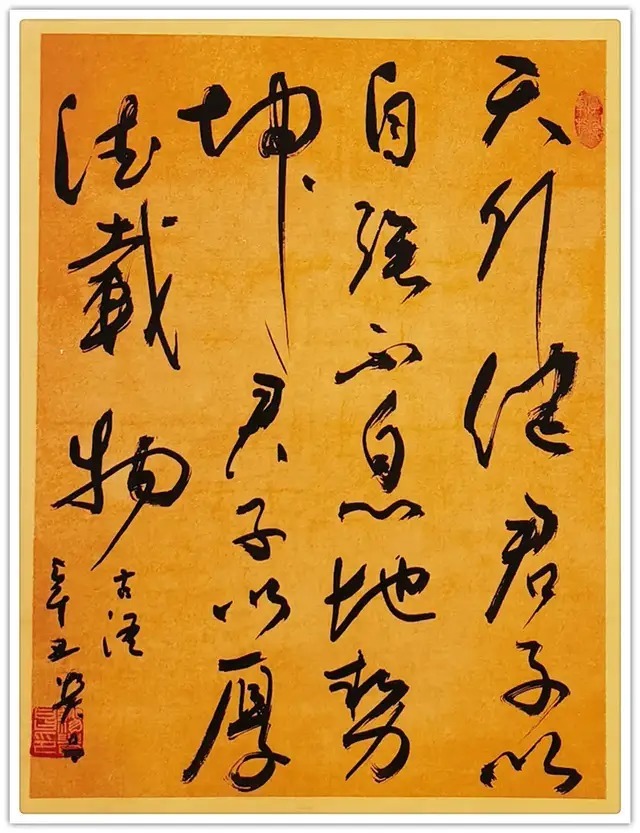 天行健君子以
自强不息地势
坤君子以厚
德載物
古语
辛丑